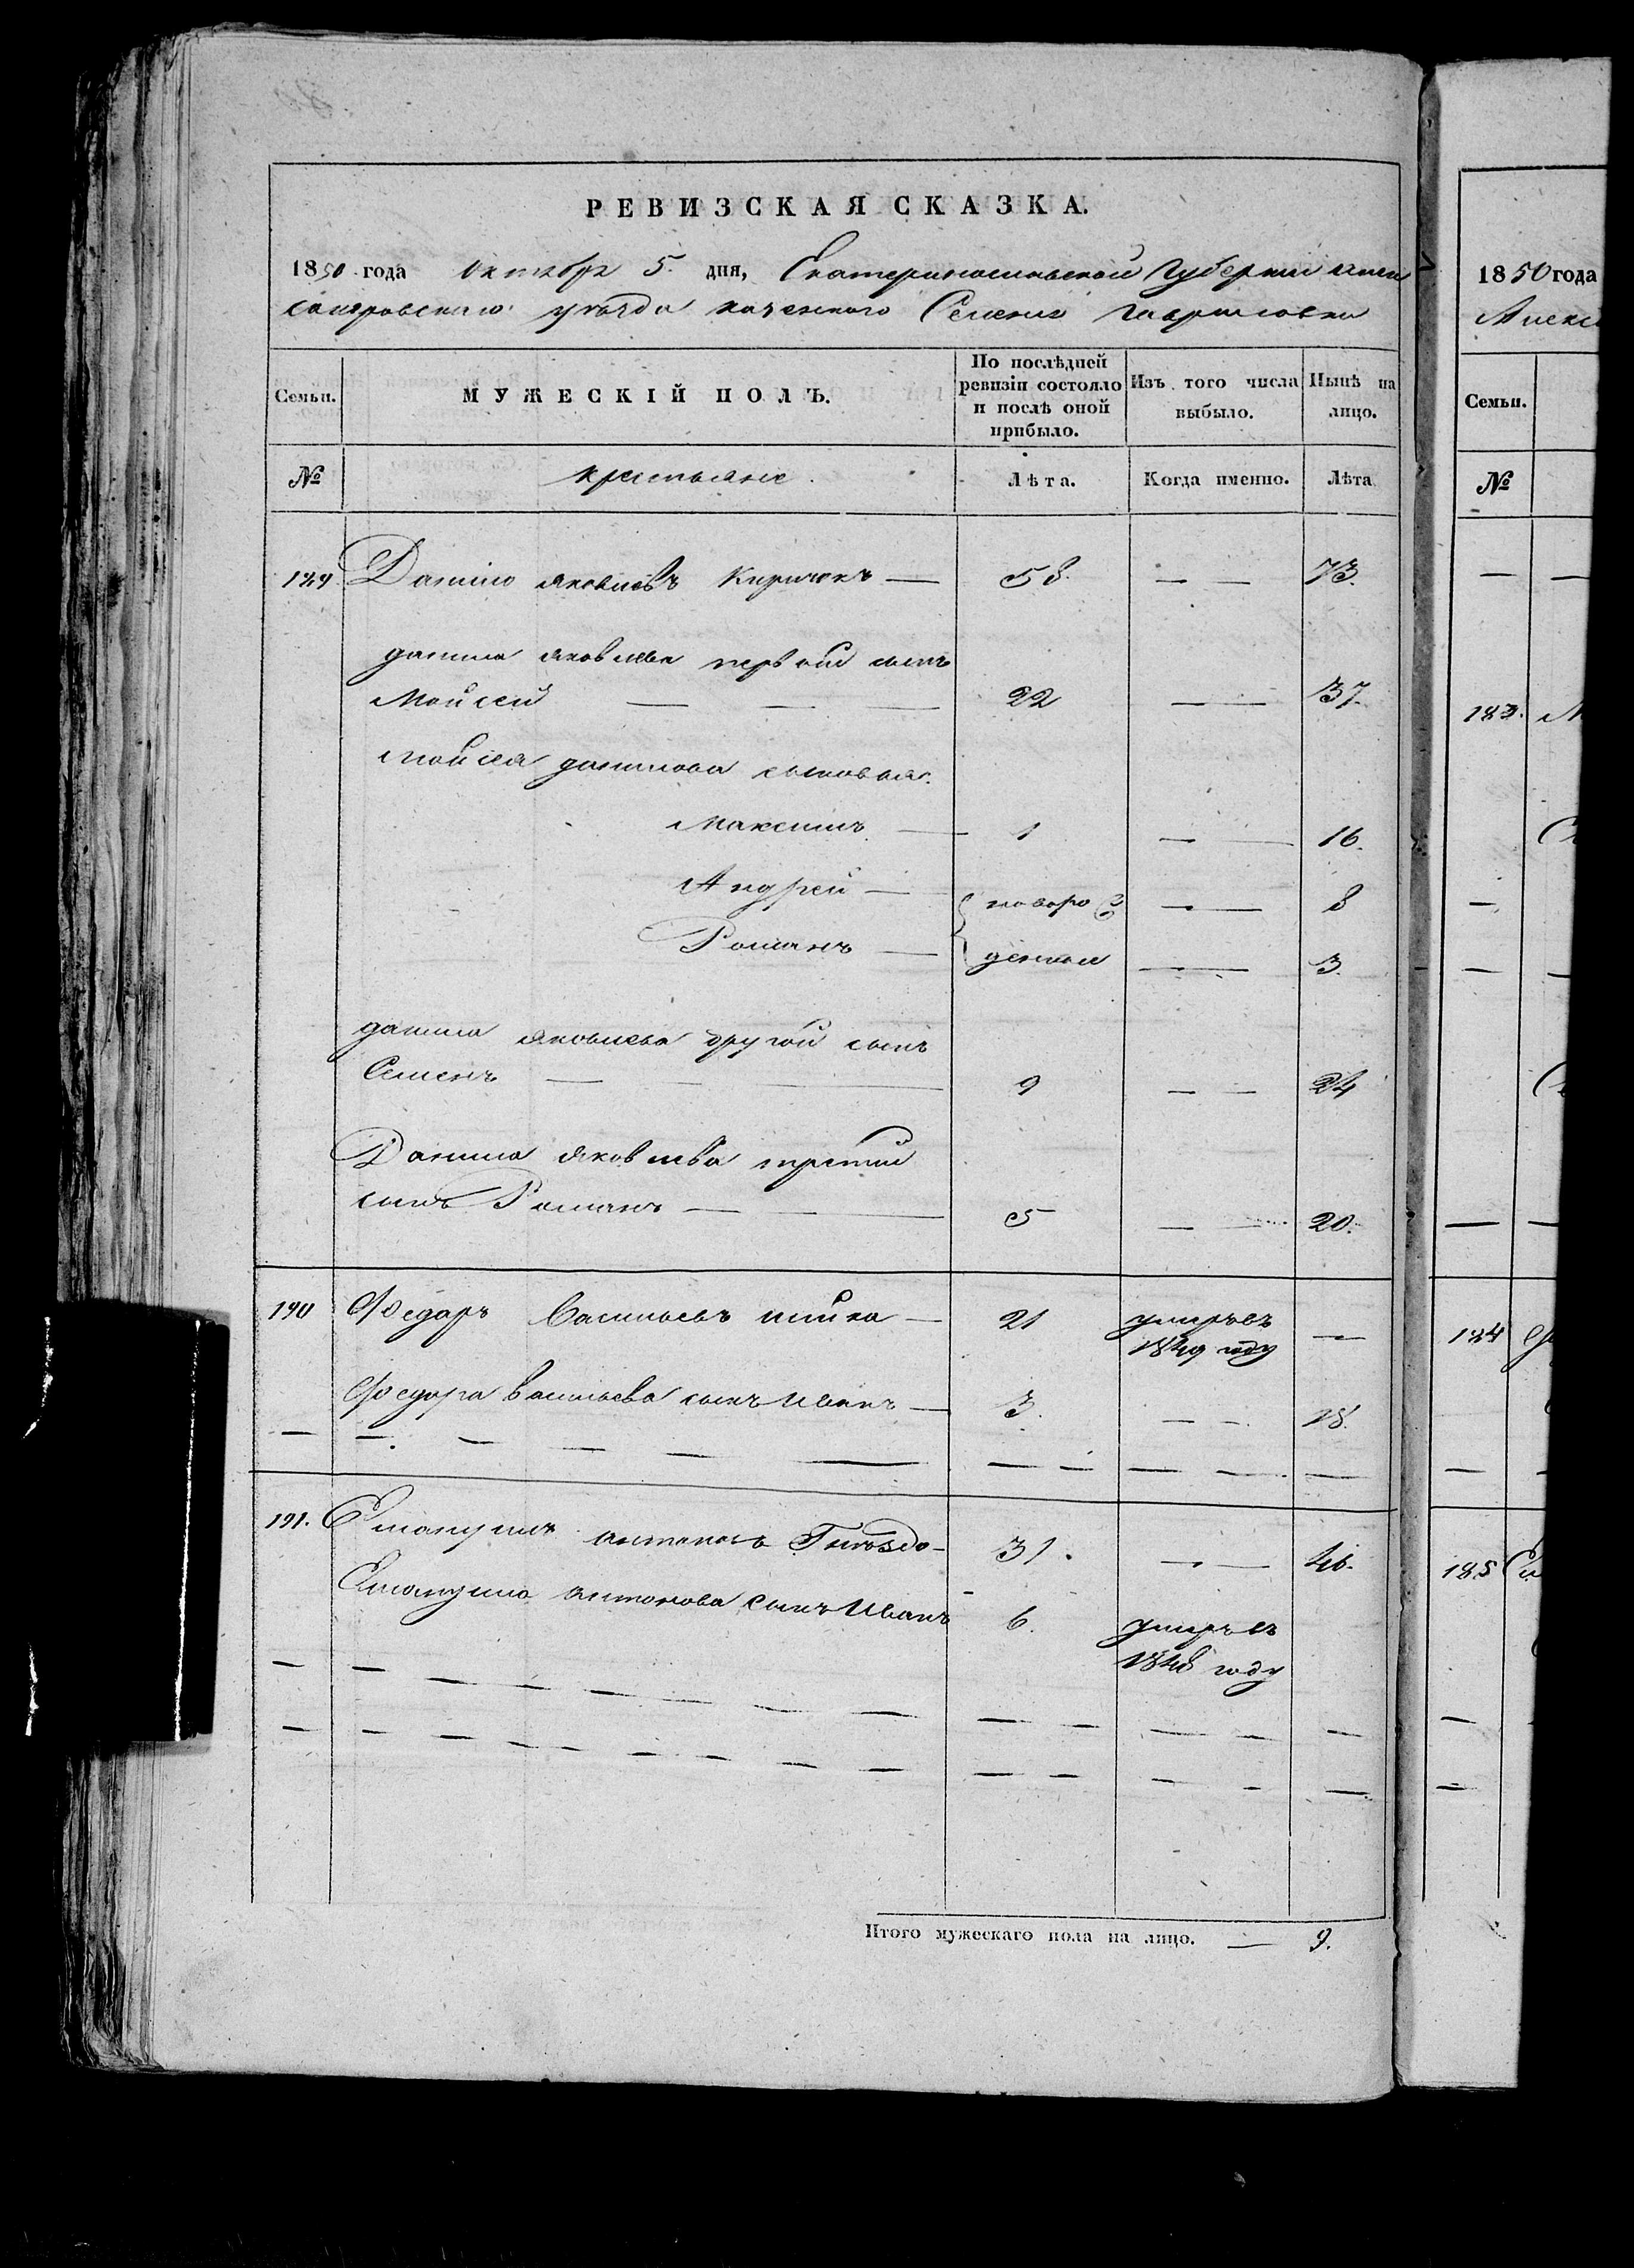 РЕВИЗСКАЯ СКАЗКА.
1850 года октября 5. дня, Екатеринославской Губернии Алек
сандровскаго уезда казенного Селения Гавриловки
Семьи. МУЖЕСКІЙ ПОЛЪ. По послѣдней ревизіи состояло и послѣ оной прибыло. Изъ того числа выбыло. Нынѣ на лицо.
№ крестьяне. Лѣта. Когда именно. Лѣта
189 Данило Яковлевъ Киричокъ — 58. — — 73.
Данила Яковлева первый сынъ
Мойсей — — — 22 — — 37.
Мойсея Данилова сыновья.
Максимъ — 1 — — 16.
Андрей — новоро — — 8
Романъ — денные — — 3.
Данила Яковлева другой сынъ
Семенъ — — — 9 — — 24
Данила Яковлева третий
сынъ Романъ — — — 5 — — 20.
190 Федоръ Васильевъ — 21 умръ въ —
1849 году
Федора Васильева сынъ Иванъ — 3. — — 18.
191. Антоновъ Гнѣздо — 31. — — 46.
Антонова сынъ Иванъ 6. умръ въ
1848 году
Итого мужескаго пола на лицо. — 9.
1850 года
Алекс
Семьи.
№
183.
184
185